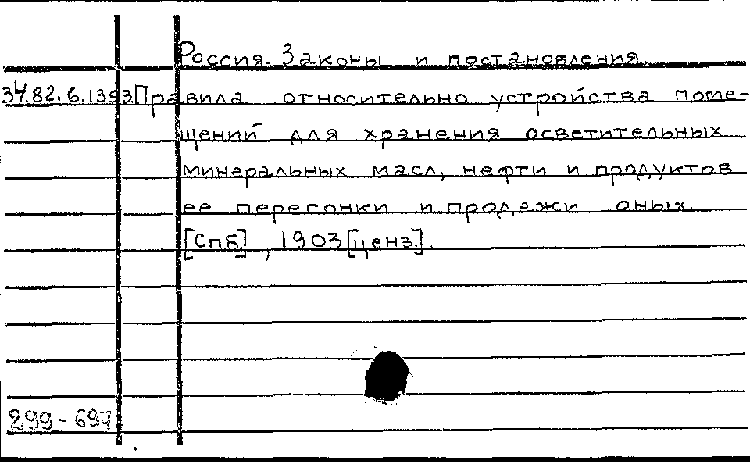 Россия. Законы и постановления
34.82.6.1393 Правила относительно устройства поме-
щений для хранения осветительных
минеральных масл, нефти и продуктов
ее перегонки и продажи оных.
[Спб], 1903 [ценз].
299-697